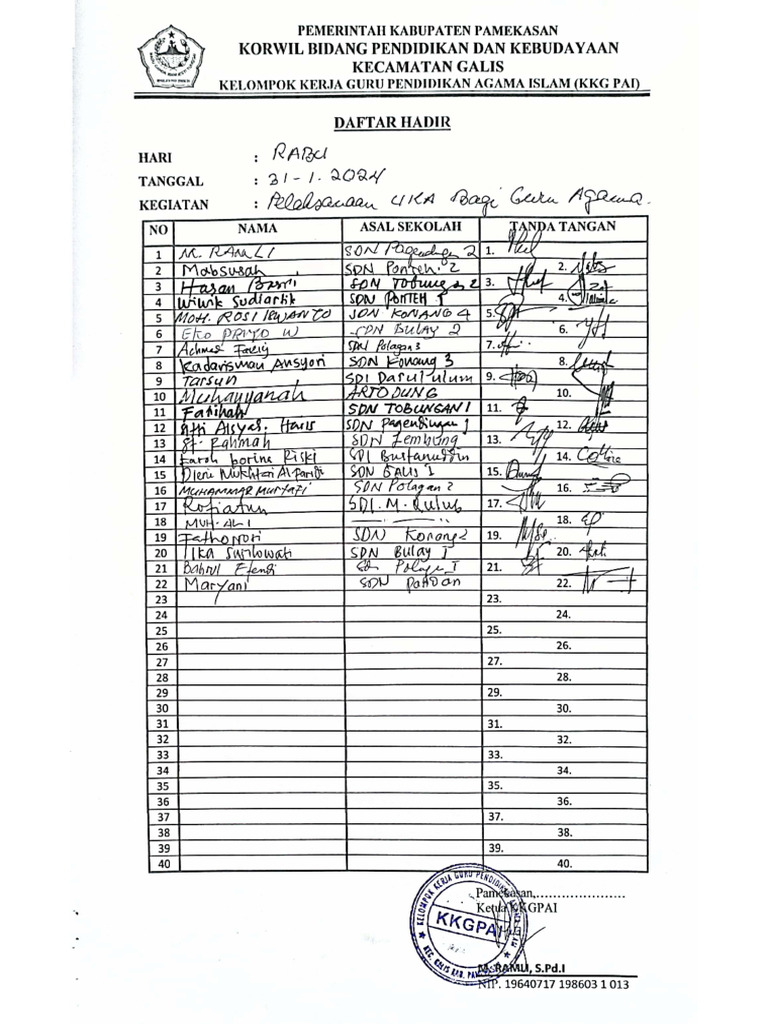 PEMERINTAH KABUPATEN PAMEKASAN
KORWIL BIDANG PENDIDIKAN DAN KEBUDAYAAN
KECAMATAN GALIS
KELOMPOK KERJA GURU PENDIDIKAN AGAMA ISLAM (KKG PAI)
DAFTAR HADIR
HARI : RABU
TANGGAL : 31-1.2024
KEGIATAN : Pelaksanaan UKA Bagi Guru Agama.
NO NAMA ASAL SEKOLAH TANDA TANGAN
1 M. RAMLI SDN Pagendingan 2 1.
2 Mabsusah SDN Ponteh 2 2.
3 Hasan Basri SDN Tobungan 2 3.
4 Wiwik Sudiartik SDN PONTEH 1 4.
5 MOH. ROSI IRWANTO SDN KONANG 4 5.
6 EKO PRIYO W SDN Bulay 2 6.
7 Achmad SDN Polagan 3 7.
8 Kadarisman Ansyori SDN Konang 3 8.
9 Tarsun SDI Darul ulum 9.
10 Muhayyanah ARTODUNG 10.
11 Fatihah SDN TOBUNGAN 1 11.
12 Aisyas. Haris SDN Pagendingan 1 12.
13 St. Rahmah SDN Lembung 13.
14 Farah borine Riski SDI Bustanuddin 14.
15 Mukhtar Alfaridi SDN GALIS 1 15.
16 MUHAMMAD MURTAFI SDN Polagan 2 16.
17 Rofiatun SDI. M. Qulub 17.
18 MUH. ALI 18.
19 Fathorrori SDN Konang 2 19.
20 IIKA Susilowati SDN Bulay 1 20.
21 Bahrul Efendi SDN Polagan 1 21.
22 Maryani SDN PANDAN 22.
23 23.
24 24.
25 25.
26 26.
27 27.
28 28.
29 29.
30 30.
31 31.
32 32.
33 33.
34 34.
35 35.
36 36.
37 37.
38 38.
39 39.
40 40.
Pamekasan,......................
Ketua KKGPAI
KELOMPOK KERJA GURU PENDIDIKAN AGAMA ISLAM
KKGPAI
KEC. GALIS KAB. PAMEKASAN
M. RAMLI, S.Pd.I
NIP. 19640717 198603 1 013